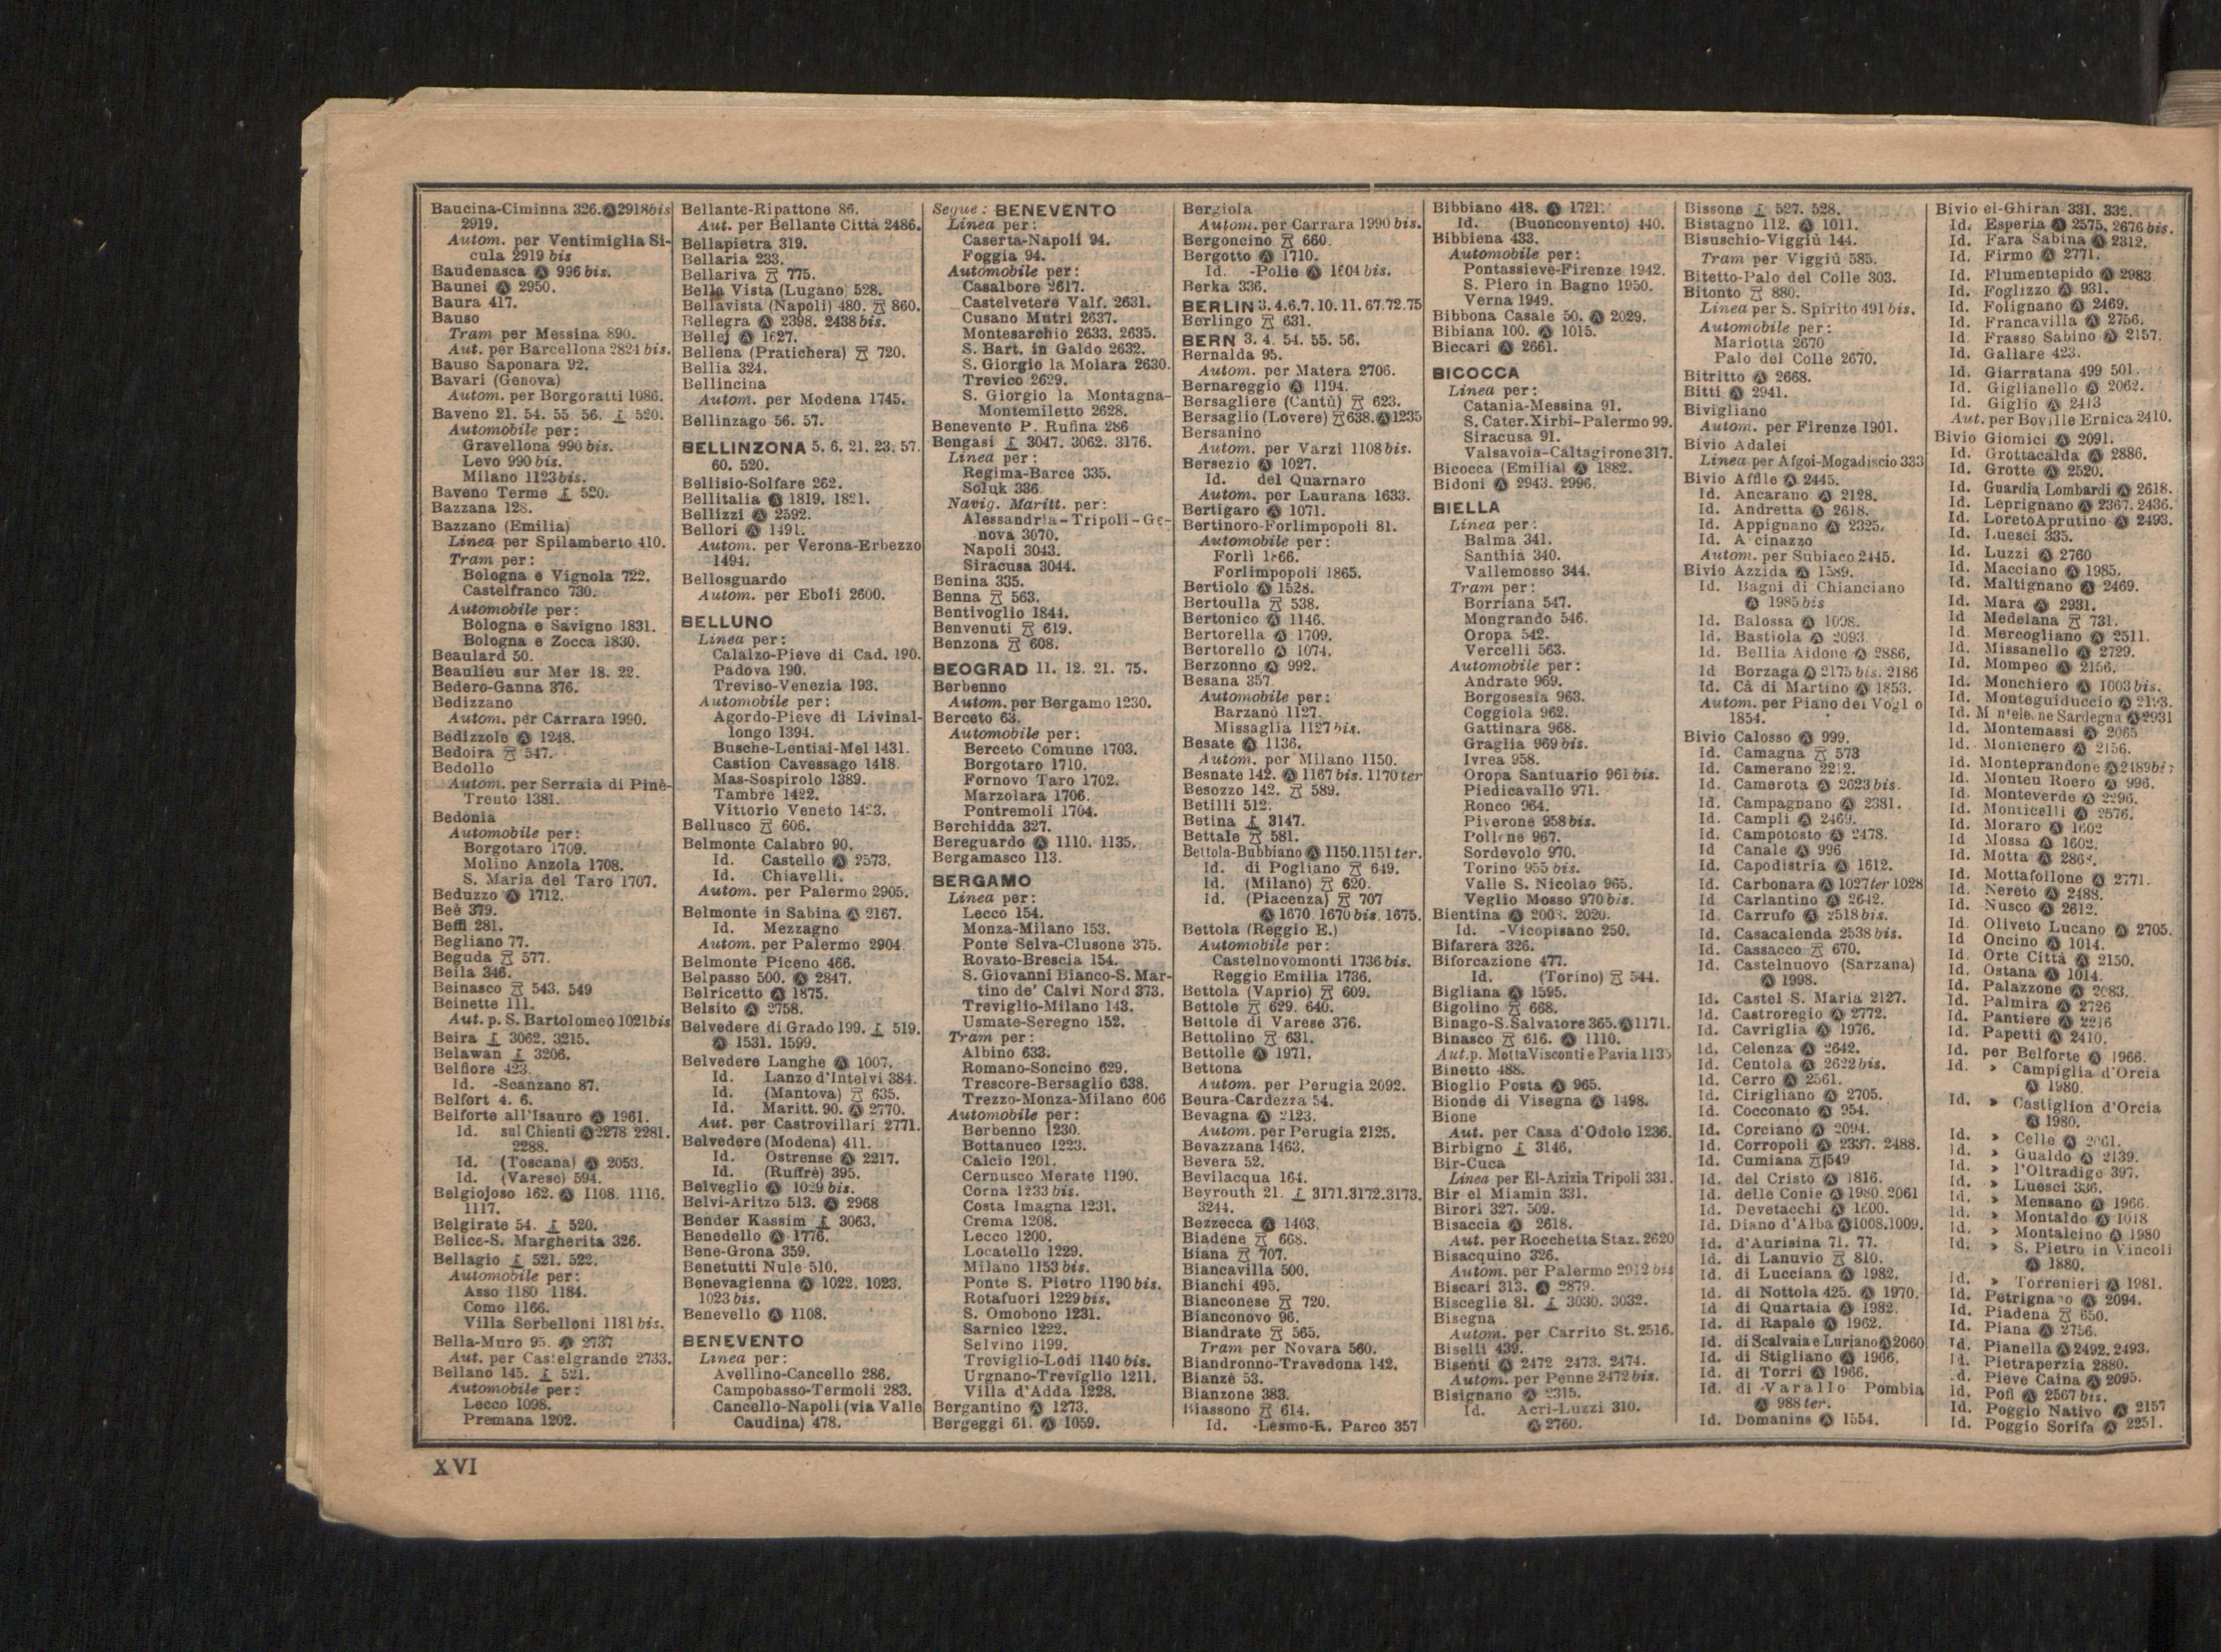 Baucina-Ciminna 326. Ⓐ 2918 bis
2919.
Autom. per Ventimiglia Si-
cula 2919 bis
Baudenasca Ⓐ 996 bis.
Baunei Ⓐ 2950.
Baura 417.
Bauso
Tram per Messina 890.
Aut. per Barcellona 2824 bis.
Bauso Saponara 92.
Bavari (Genova)
Autom. per Borgoratti 1086.
Baveno 21. 54. 55. 56. ⚓ 520.
Automobile per:
Gravellona 990 bis.
Levo 990 bis.
Milano 1123 bis.
Baveno Terme ⚓ 520.
Bazzana 128.
Bazzano (Emilia)
Linea per Spilamberto 410.
Tram per:
Bologna e Vignola 722.
Castelfranco 730.
Automobile per:
Bologna e Savigno 1831.
Bologna e Zocca 1830.
Beaulard 50.
Beaulieu sur Mer 18. 22.
Bedero-Ganna 376.
Bedizzano
Autom. per Carrara 1990.
Bedizzole Ⓐ 1248.
Bedoira 547.
Bedollo
Autom. per Serraia di Pinè-
Trento 1381.
Bedonia
Automobile per:
Borgotaro 1709.
Molino Anzola 1708.
S. Maria del Taro 1707.
Beduzzo Ⓐ 1712.
Beè 379.
Beffi 281.
Begliano 77.
Beguda 577.
Beila 346.
Beinasco 543. 549
Beinette 111.
Aut. p. S. Bartolomeo 1021 bis
Beira ⚓ 3062. 3215.
Belawan ⚓ 3206.
Belfiore 423.
Id. -Scanzano 87.
Belfort 4. 6.
Belforte all'Isauro Ⓐ 1961.
Id. sul Chienti Ⓐ 2278 2281.
2288.
Id. (Toscana) Ⓐ 2053.
Id. (Varese) 594.
Belgiojoso 162. Ⓐ 1108. 1116.
1117.
Belgirate 54. ⚓ 520.
Belice-S. Margherita 326.
Bellagio ⚓ 521. 522.
Automobile per:
Asso 1180 1184.
Como 1166.
Villa Serbelloni 1181 bis.
Bella-Muro 95. Ⓐ 2737
Aut. per Castelgrande 2733.
Bellano 145. ⚓ 521.
Automobile per:
Lecco 1098.
Premana 1202.
Bellante-Ripattone 86.
Aut. per Bellante Città 2486.
Bellapietra 319.
Bellaria 233.
Bellariva 775.
Bella Vista (Lugano) 528.
Bellavista (Napoli) 480. 860.
Bellegra Ⓐ 2398. 2438 bis.
Bellej Ⓐ 1627.
Bellena (Pratichera) 720.
Bellia 324.
Bellincina
Autom. per Modena 1745.
Bellinzago 56. 57.
BELLINZONA 5. 6. 21. 23. 57.
60. 520.
Bellisio-Solfare 262.
Bellitalia Ⓐ 1819. 1821.
Bellizzi Ⓐ 2592.
Bellori Ⓐ 1491.
Autom. per Verona-Erbezzo
1494.
Bellosguardo
Autom. per Eboli 2600.
BELLUNO
Linea per:
Calalzo-Pieve di Cad. 190.
Padova 190.
Treviso-Venezia 193.
Automobile per:
Agordo-Pieve di Livinal-
longo 1394.
Busche-Lentiai-Mel 1431.
Castion Cavessago 1418.
Mas-Sospirolo 1389.
Tambre 1422.
Vittorio Veneto 1423.
Bellusco 606.
Belmonte Calabro 90.
Id. Castello Ⓐ 2573.
Id. Chiavelli.
Autom. per Palermo 2905.
Belmonte in Sabina Ⓐ 2167.
Id. Mezzagno
Autom. per Palermo 2904.
Belmonte Piceno 466.
Belpasso 500. Ⓐ 2847.
Belricetto Ⓐ 1875.
Belsito Ⓐ 2758.
Belvedere di Grado 199. ⚓ 519.
Ⓐ 1531. 1599.
Belvedere Langhe Ⓐ 1007.
Id. Lanzo d'Intelvi 384.
Id. (Mantova) 635.
Id. Maritt. 90. Ⓐ 2770.
Aut. per Castrovillari 2771.
Belvedere (Modena) 411.
Id. Ostrense Ⓐ 2217.
Id. (Ruffrè) 395.
Belveglio Ⓐ 1029 bis.
Belvi-Aritzo 513. Ⓐ 2968
Bender Kassim ⚓ 3063.
Benedello Ⓐ 1776.
Bene-Grona 359.
Benetutti Nule 510.
Benevagienna Ⓐ 1022. 1023.
1023 bis.
Benevello Ⓐ 1108.
BENEVENTO
Linea per:
Avellino-Cancello 286.
Campobasso-Termoli 283.
Cancello-Napoli (via Valle
Caudina) 478.
Segue: BENEVENTO
Linea per:
Caserta-Napoli 94.
Foggia 94.
Automobile per:
Casalbore 2617.
Castelvetere Valf. 2631.
Cusano Mutri 2637.
Montesarchio 2633. 2635.
S. Bart. in Galdo 2632.
S. Giorgio la Molara 2630.
Trevico 2629.
S. Giorgio la Montagna-
Montemiletto 2628.
Benevento P. Rufina 286
Bengasi ⚓ 3047. 3062. 3176.
Linea per:
Regima-Barce 335.
Soluk 336.
Navig. Maritt. per:
Alessandria-Tripoli-Ge-
nova 3070.
Napoli 3043.
Siracusa 3044.
Benina 335.
Benna 563.
Bentivoglio 1844.
Benvenuti 619.
Benzona 608.
BEOGRAD 11. 12. 21. 75.
Berbenno
Autom. per Bergamo 1230.
Berceto 63.
Automobile per:
Berceto Comune 1703.
Borgotaro 1710.
Fornovo Taro 1702.
Marzolara 1706.
Pontremoli 1704.
Berchidda 327.
Bereguardo Ⓐ 1110. 1135.
Bergamasco 113.
BERGAMO
Linea per:
Lecco 154.
Monza-Milano 153.
Ponte Selva-Clusone 375.
Rovato-Brescia 154.
S. Giovanni Bianco-S. Mar-
tino de' Calvi Nord 373.
Treviglio-Milano 143.
Usmate-Seregno 152.
Tram per:
Albino 633.
Romano-Soncino 629.
Trescore-Bersaglio 638.
Trezzo-Monza-Milano 606
Automobile per:
Berbenno 1230.
Bottanuco 1223.
Calcio 1201.
Cernusco Merate 1190.
Corna 1233 bis.
Costa Imagna 1231.
Crema 1208.
Lecco 1200.
Locatello 1229.
Milano 1153 bis.
Ponte S. Pietro 1190 bis.
Rotafuori 1229 bis.
S. Omobono 1231.
Sarnico 1222.
Selvino 1199.
Treviglio-Lodi 1140 bis.
Urgnano-Treviglio 1211.
Villa d'Adda 1228.
Bergantino Ⓐ 1273.
Bergeggi 61. Ⓐ 1059.
Bergiola
Autom. per Carrara 1990 bis.
Bergoncino 660.
Bergotto Ⓐ 1710.
Id. -Polie Ⓐ 1604 bis.
Berka 336.
BERLIN 3. 4. 6. 7. 10. 11. 67. 72. 75
Berlingo 631.
BERN 3. 4. 54. 55. 56.
Bernalda 95.
Autom. per Matera 2706.
Bernareggio Ⓐ 1194.
Bersagliere (Cantù) 623.
Bersaglio (Lovere) 638. Ⓐ 1235
Bersanino
Autom. per Varzi 1108 bis.
Bersezio Ⓐ 1027.
Id. del Quarnaro
Autom. per Laurana 1633.
Bertigaro Ⓐ 1071.
Bertinoro-Forlimpopoli 81.
Automobile per:
Forlì 1866.
Forlimpopoli 1865.
Bertiolo Ⓐ 1528.
Bertoulla 538.
Bertonico Ⓐ 1146.
Bertorella Ⓐ 1709.
Bertorello Ⓐ 1074.
Berzonno Ⓐ 992.
Besana 357.
Automobile per:
Barzanò 1127.
Missaglia 1127 bis.
Besate Ⓐ 1136.
Autom. per Milano 1150.
Besnate 142. Ⓐ 1167 bis. 1170 ter
Besozzo 142. 589.
Betilli 512.
Betina ⚓ 3147.
Bettale 581.
Bettola-Bubbiano Ⓐ 1150. 1151 ter.
Id. di Pogliano 649.
Id. (Milano) 620.
Id. (Piacenza) 707
Ⓐ 1670 1670 bis. 1675.
Bettola (Reggio E.)
Automobile per:
Castelnovomonti 1736 bis.
Reggio Emilia 1736.
Bettola (Vaprio) 609.
Bettole 629. 640.
Bettole di Varese 376.
Bettolino 631.
Bettolle Ⓐ 1971.
Bettona
Autom. per Perugia 2092.
Beura-Cardezza 54.
Bevagna Ⓐ 2123.
Autom. per Perugia 2125.
Bevazzana 1463.
Bevera 52.
Bevilacqua 164.
Beyrouth 21. ⚓ 3171. 3172. 3173.
3244.
Bezzecca Ⓐ 1403.
Biadene 668.
Biana 707.
Biancavilla 500.
Bianchi 495.
Bianconese 720.
Bianconovo 96.
Biandrate 565.
Tram per Novara 560.
Biandronno-Travedona 142.
Bianzè 53.
Bianzone 383.
Biassono 614.
Id. -Lesmo-R. Parco 357
Bibbiano 418. Ⓐ 1721.
Id. (Buonconvento) 440.
Bibbiena 433.
Automobile per:
Pontassieve-Firenze 1942.
S. Piero in Bagno 1950.
Verna 1949.
Bibbona Casale 50. Ⓐ 2029.
Bibiana 100. Ⓐ 1015.
Biccari Ⓐ 2661.
BICOCCA
Linea per:
Catania-Messina 91.
S. Cater. Xirbi-Palermo 99.
Siracusa 91.
Valsavoia-Caltagirone 317.
Bicocca (Emilia) Ⓐ 1882.
Bidoni Ⓐ 2943. 2996.
BIELLA
Linea per:
Balma 341.
Santhià 340.
Vallemosso 344.
Tram per:
Borriana 547.
Mongrando 546.
Oropa 542.
Vercelli 563.
Automobile per:
Andrate 969.
Borgosesia 963.
Coggiola 962.
Gattinara 968.
Graglia 969 bis.
Ivrea 958.
Oropa Santuario 961 bis.
Piedicavallo 971.
Ronco 964.
Piverone 958 bis.
Pollone 967.
Sordevolo 970.
Torino 955 bis.
Valle S. Nicolao 965.
Veglio Mosso 970 bis.
Bientina Ⓐ 2008. 2020.
Id. -Vicopisano 250.
Bifarera 326.
Biforcazione 477.
Id. (Torino) 544.
Bigliana Ⓐ 1595.
Bigolino 668.
Binago-S. Salvatore 365. Ⓐ 1171.
Binasco 616. Ⓐ 1110.
Aut. p. Motta Visconti e Pavia 1135
Binetto 488.
Bioglio Posta Ⓐ 965.
Bionde di Visegna Ⓐ 1498.
Bione
Aut. per Casa d'Odolo 1236.
Birbigno ⚓ 3146.
Bir-Cuca
Linea per El-Azizia Tripoli 331.
Bir el Miamin 331.
Birori 327. 509.
Bisaccia Ⓐ 2618.
Aut. per Rocchetta Staz. 2620
Bisacquino 326.
Autom. per Palermo 2912 bis
Biscari 313. Ⓐ 2879.
Bisceglie 81. ⚓ 3030. 3032.
Bisegna
Autom. per Carrito St. 2516.
Biselli 439.
Bisenti Ⓐ 2472 2473. 2474.
Autom. per Penne 2472 bis.
Bisignano Ⓐ 2315.
Id. Acri-Luzzi 310.
Ⓐ 2760.
Bissone ⚓ 527. 528.
Bistagno 112. Ⓐ 1011.
Bisuschio-Viggiù 144.
Tram per Viggiù 585.
Bitetto-Palo del Colle 303.
Bitonto 880.
Linea per S. Spirito 491 bis.
Automobile per:
Mariotta 2670
Palo del Colle 2670.
Bitritto Ⓐ 2668.
Bitti Ⓐ 2941.
Bivigliano
Autom. per Firenze 1901.
Bivio Adalei
Linea per Afgoi-Mogadiscio 333
Bivio Affile Ⓐ 2445.
Id. Ancarano Ⓐ 2128.
Id. Andretta Ⓐ 2618.
Id. Appignano Ⓐ 2325.
Id. A cinazzo
Autom. per Subiaco 2445.
Bivio Azzida Ⓐ 1589.
Id. Bagni di Chianciano
Ⓐ 1985 bis
Id. Balossa Ⓐ 1098.
Id. Bastiola Ⓐ 2093.
Id. Bellia Aidone Ⓐ 2886.
Id Borzaga Ⓐ 2175 bis. 2186
Id. Cà di Martino Ⓐ 1853.
Autom. per Piano dei Vogl o
1854.
Bivio Calosso Ⓐ 999.
Id. Camagna 573
Id. Camerano 2212.
Id. Camerota Ⓐ 2623 bis.
Id. Campagnano Ⓐ 2381.
Id. Campli Ⓐ 2469.
Id. Campotosto Ⓐ 2478.
Id Canale Ⓐ 996
Id. Capodistria Ⓐ 1612.
Id. Carbonara Ⓐ 1027 ter 1028
Id. Carlantino Ⓐ 2642.
Id. Carrufo Ⓐ 2518 bis.
Id. Casacalenda 2538 bis.
Id. Cassacco 670.
Id. Castelnuovo (Sarzana)
Ⓐ 1998.
Id. Castel S. Maria 2127.
Id. Castroregio Ⓐ 2772.
Id. Cavriglia Ⓐ 1976.
Id. Celenza Ⓐ 2642.
Id. Centola Ⓐ 2622 bis.
Id. Cerro Ⓐ 2561.
Id. Cirigliano Ⓐ 2705.
Id. Cocconato Ⓐ 954.
Id. Corciano Ⓐ 2094.
Id. Corropoli Ⓐ 2337. 2488.
Id. Cumiana 549
Id. del Cristo Ⓐ 1816.
Id. delle Conie Ⓐ 1980. 2061
Id. Devetacchi Ⓐ 1600.
Id. Diano d'Alba Ⓐ 1008. 1009.
Id. d'Aurisina 71. 77.
Id. di Lanuvio 810.
Id. di Lucciana Ⓐ 1982.
Id. di Nottola 425. Ⓐ 1970.
Id di Quartaia Ⓐ 1982.
Id. di Rapale Ⓐ 1962.
Id. di Scalvaia e Luriano Ⓐ 2060
Id. di Stigliano Ⓐ 1966.
Id. di Torri Ⓐ 1966.
Id. di Varallo Pombia
Ⓐ 988 ter.
Id. Domanins Ⓐ 1554.
Bivio el-Ghiran 331. 332.
Id. Esperia Ⓐ 2575. 2676 bis.
Id. Fara Sabina Ⓐ 2312.
Id. Firmo Ⓐ 2771.
Id. Flumentepido Ⓐ 2983.
Id. Foglizzo Ⓐ 931.
Id. Folignano Ⓐ 2469.
Id. Francavilla Ⓐ 2756.
Id. Frasso Sabino Ⓐ 2157.
Id. Gallare 423.
Id. Giarratana 499 501.
Id. Giglianello Ⓐ 2062.
Id. Giglio Ⓐ 2413
Aut. per Boville Ernica 2410.
Bivio Giomici Ⓐ 2091.
Id. Grottacalda Ⓐ 2886.
Id. Grotte Ⓐ 2520.
Id. Guardia Lombardi Ⓐ 2618.
Id. Leprignano Ⓐ 2367. 2436.
Id. Loreto Aprutino Ⓐ 2493.
Id. Luesci 335.
Id. Luzzi Ⓐ 2760
Id. Macciano Ⓐ 1985.
Id. Maltignano Ⓐ 2469.
Id. Mara Ⓐ 2931.
Id Medelana 731.
Id. Mercogliano Ⓐ 2511.
Id. Missanello Ⓐ 2729.
Id. Mompeo Ⓐ 2156.
Id. Monchiero Ⓐ 1003 bis.
Id. Monteguiduccio Ⓐ 2193.
Id. M n'ele. ne Sardegna Ⓐ 2931
Id. Montemassi Ⓐ 2065
Id. Montenero Ⓐ 2156.
Id. Monteprandone Ⓐ 2489 bis
Id. Monteu Roero Ⓐ 996.
Id. Monteverde Ⓐ 2296.
Id. Monticelli Ⓐ 2576.
Id. Moraro Ⓐ 1602
Id Mossa Ⓐ 1602.
Id. Motta Ⓐ
Id. Mottafollone Ⓐ 2771.
Id. Nereto Ⓐ 2488.
Id. Nusco Ⓐ 2612.
Id. Oliveto Lucano Ⓐ 2705.
Id Oncino Ⓐ 1014.
Id. Orte Città Ⓐ 2150.
Id. Ostana Ⓐ 1014.
Id. Palazzone Ⓐ 2083.
Id. Palmira Ⓐ 2726
Id. Pantiere Ⓐ 2216
Id. Papetti Ⓐ 2410.
Id. per Belforte Ⓐ 1966.
Id. » Campiglia d'Orcia
Ⓐ 1980.
Id. » Castiglion d'Orcia
Ⓐ 1980.
Id. » Celle Ⓐ 2061.
Id. » Gualdo Ⓐ 2139.
Id. » l'Oltradige 397.
Id. » Luesci 336.
Id. » Mensano Ⓐ 1966.
Id. » Montaldo Ⓐ 1018
Id. » Montalcino Ⓐ 1980
Id. » S. Pietro in Vincoli
Ⓐ 1880.
Id. » Torrenieri Ⓐ 1981.
Id. Petrigna o Ⓐ 2094.
Id. Piadena 650.
Id. Piana Ⓐ 2756.
Id. Pianella Ⓐ 2492. 2493.
Id. Pietraperzia 2880.
Id. Pieve Caina Ⓐ 2095.
Id. Pofi Ⓐ 2567 bis.
Id. Poggio Nativo Ⓐ 2157
Id. Poggio Sorifa Ⓐ 2251.
XVI